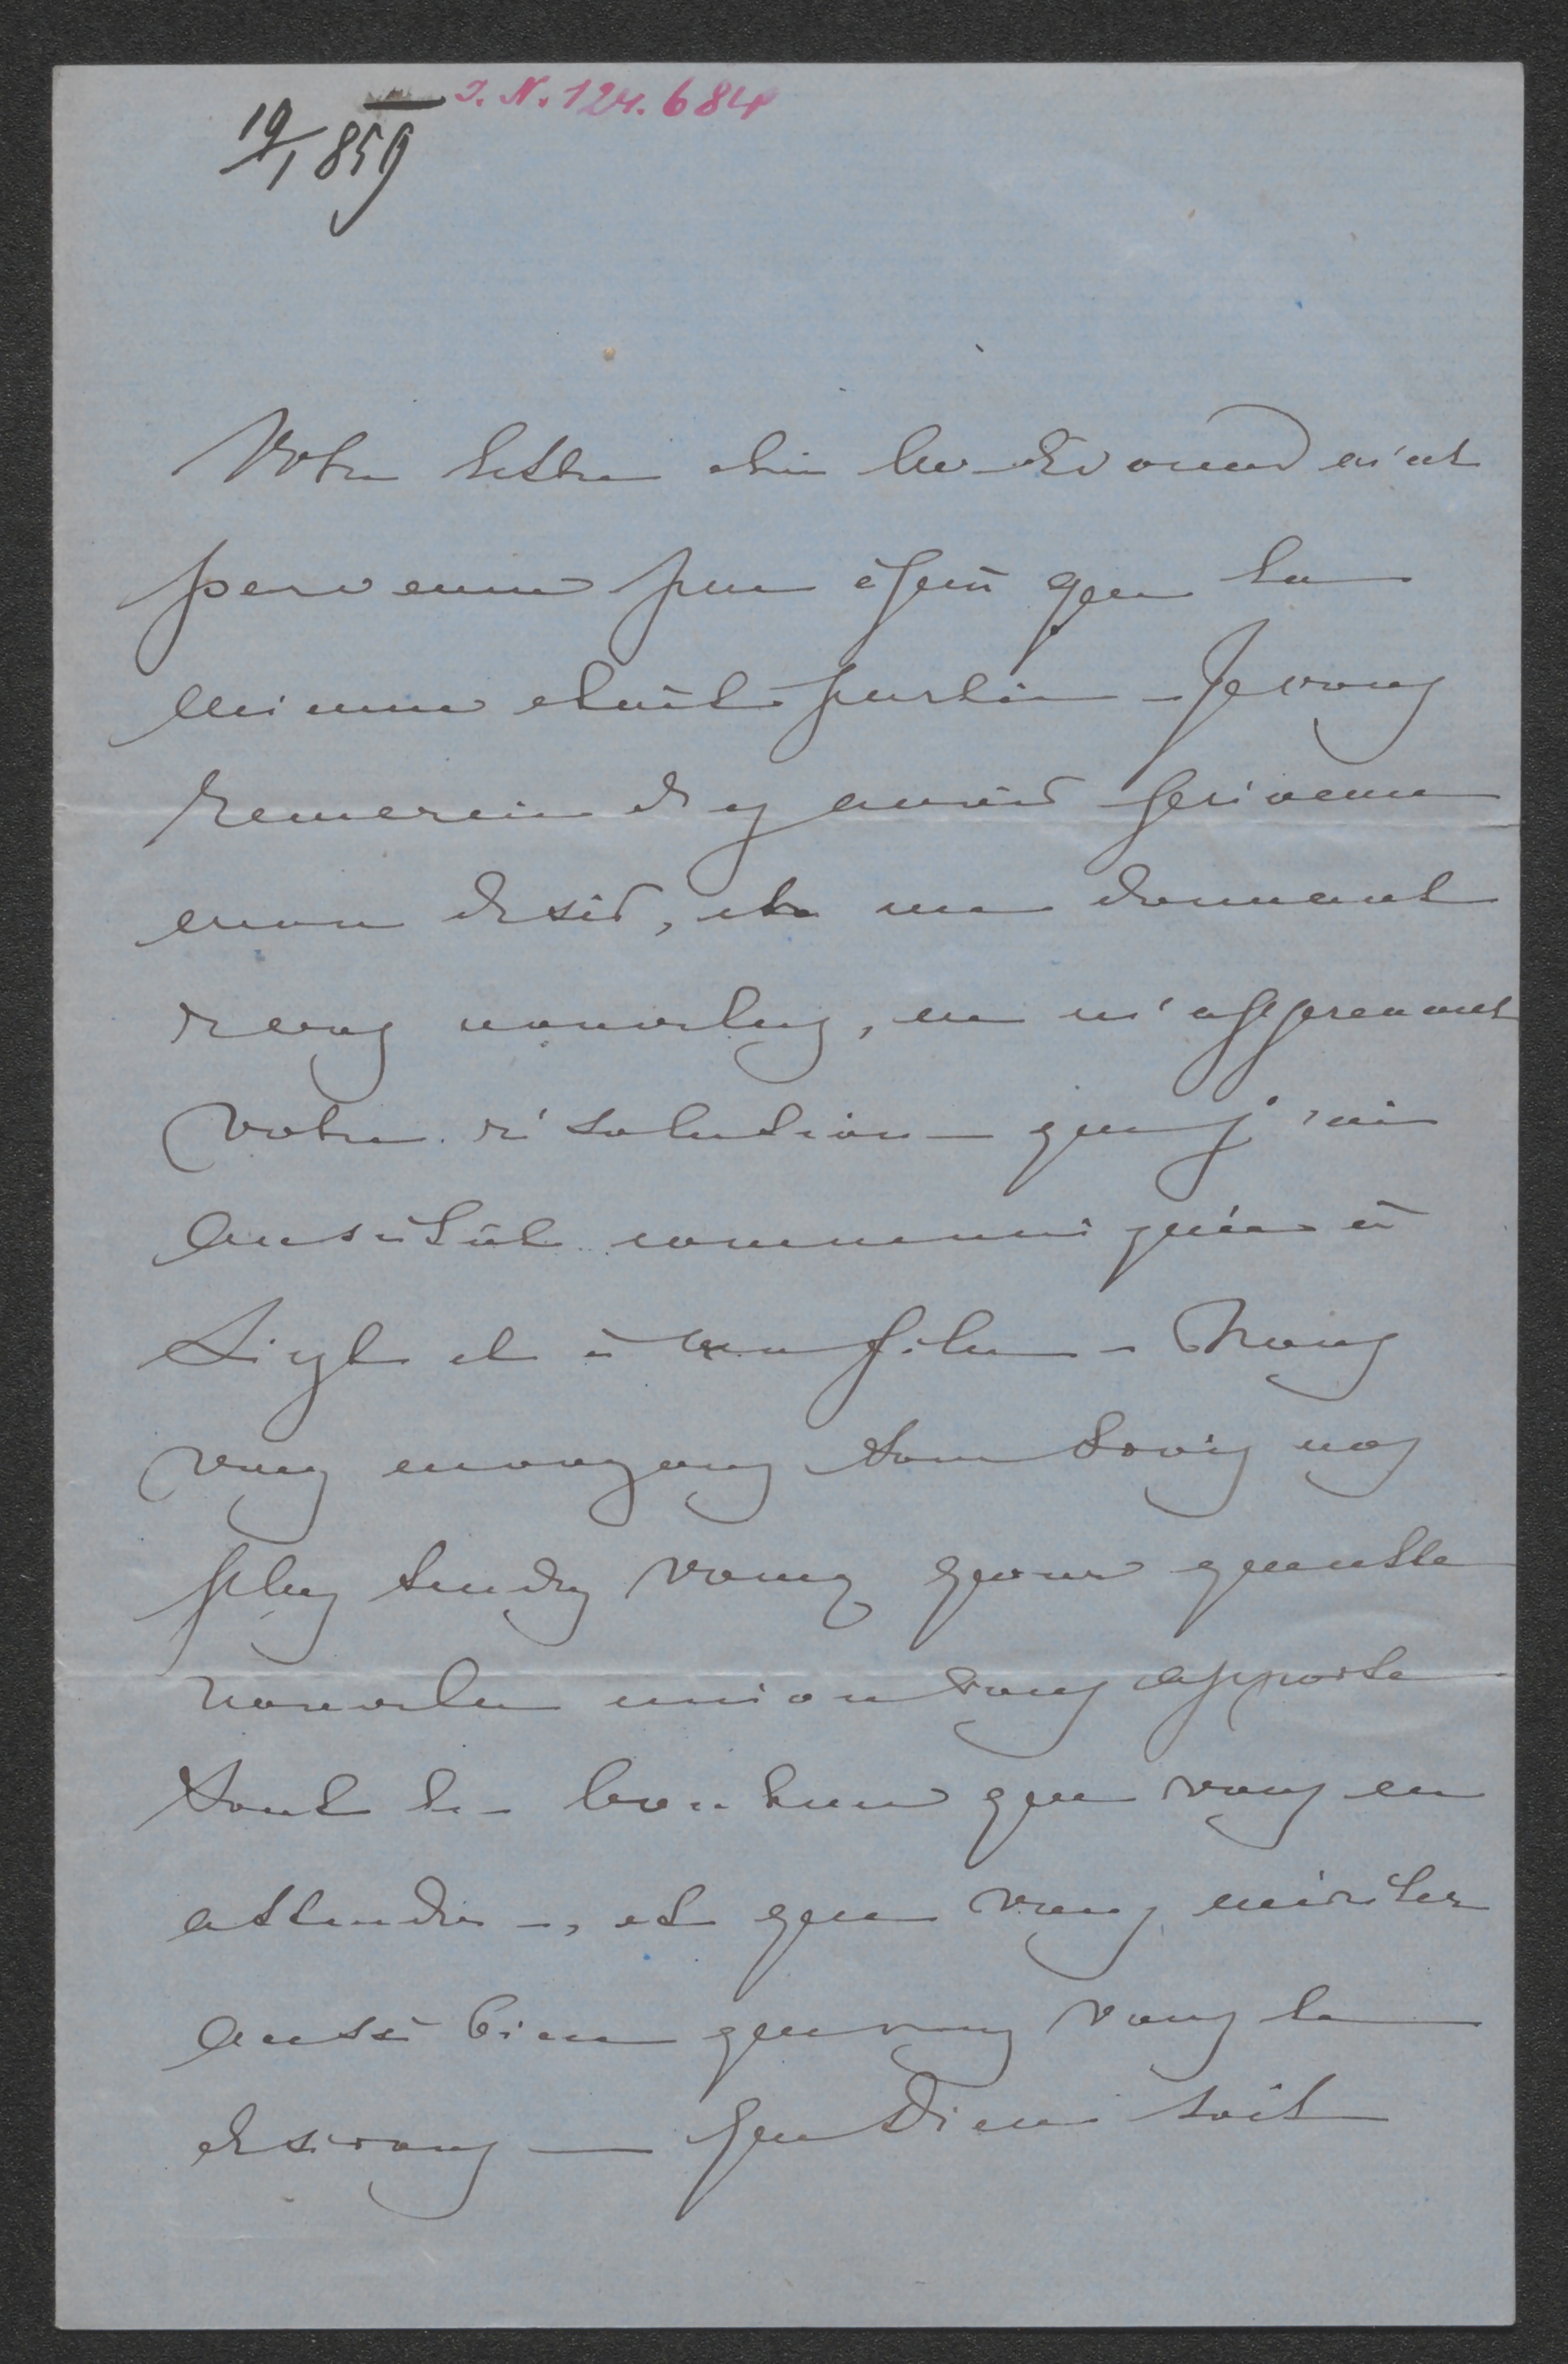 I. N. 124.684
19/1 859
Votre lettre cher Monsieur m'est
parvenue peu après que la
mienne etait partie – Je vous
remercie d'y avoir prévenu
mon desir, et me donnant
de vos nouvelles, en m'apprenant
votre résolution – que j'ai
aussitôt communiquée à
Liszt et à ma fille – Nous
vous envoyons tous trois nos
plus tendres voeux pour que cette
nouvelle union vous apporte
tout le bonheur que vous en
attendez –, et que vous méritez
aussi bien que nous vous le
desirons – Que Dieu soit